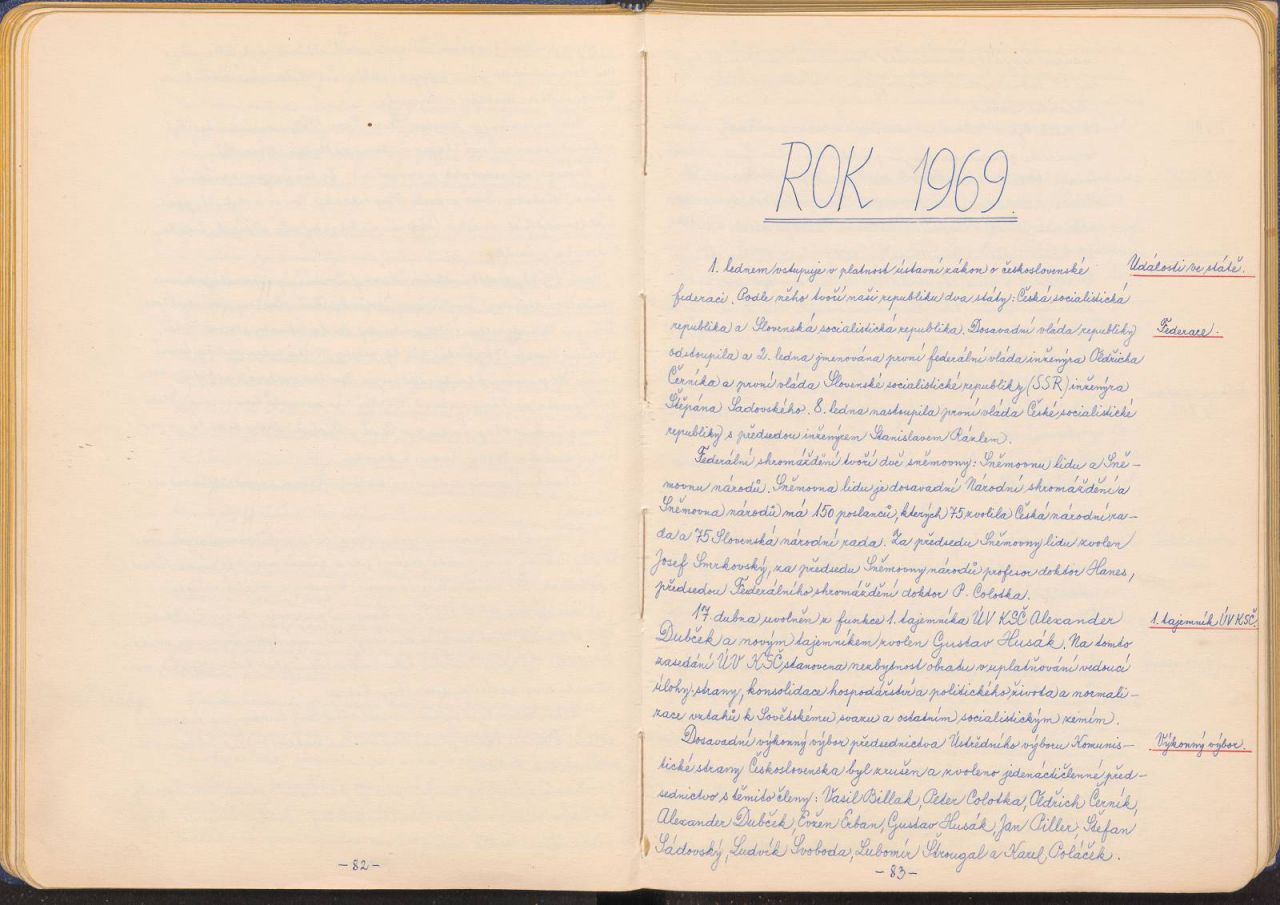 ROK 1969.
1. lednem vstupuje v platnost ústavní zákon o československé
Události ve státě.
federaci. Podle něho tvoří naši republiku dva státy: Česká socialistická
republika a Slovenská socialistická republika. Dosavadní vláda republiky
Federace.
odstoupila a 2. ledna jmenována první federální vláda inženýra Oldřicha
Černíka a první vláda Slovenské socialistické republiky (SSR) inženýra
Štěpána Sadovského. 8. ledna nastoupila první vláda České socialistické
republiky s předsedou inženýrem Stanislavem Rázlem.
Federální shromáždění tvoří dvě sněmovny: Sněmovnu lidu a Sně-
movnu národů. Sněmovna lidu je dosavadní Národní shromáždění a
Sněmovna národů má 150 poslanců, kterých 75 zvolila Česká národní ra-
da a 75 Slovenská národní rada. Za předsedu Sněmovny lidu zvolen
Josef Smrkovský, za předsedu Sněmovny národů profesor doktor Hanes,
předsedou Federálního shromáždění doktor P. Colotka.
17. dubna uvolněn z funkce 1. tajemníka ÚV KSČ Alexander
1. tajemník ÚV KSČ.
Dubček a novým tajemníkem zvolen Gustav Husák. Na tomto
zasedání ÚV KSČ stanovena nezbytnost obratu v uplatňování vedoucí
úlohy strany, konsolidace hospodářství a politického života a normali-
zace vztahů k Sovětskému svazu a ostatním socialistickým zemím.
Dosavadní výkonný výbor předsednictva Ústředního výboru Komunis-
Výkonný výbor.
tické strany Československa byl zrušen a zvoleno jedenáctičlenné před-
sednictvo s těmito členy: Vasil Billak, Peter Colotka, Oldřich Černík,
Alexander Dubček, Evžen Erban, Gustav Husák, Jan Piller, Štefan
Sádovský, Ludvík Svoboda, Lubomír Štrougal a Karel Poláček.
-82-
-83-